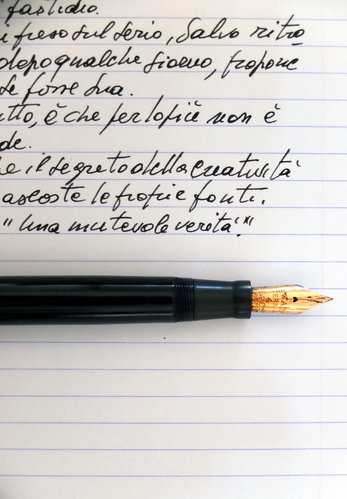 fastidio.
preso sul serio, salvo ritro
dopo qualche giorno, propone
se fosse sua.
tutto, è che per lopiù non è
de.
il segreto della creatività
ascoste le proprie fonti.
"una mutevole verità".